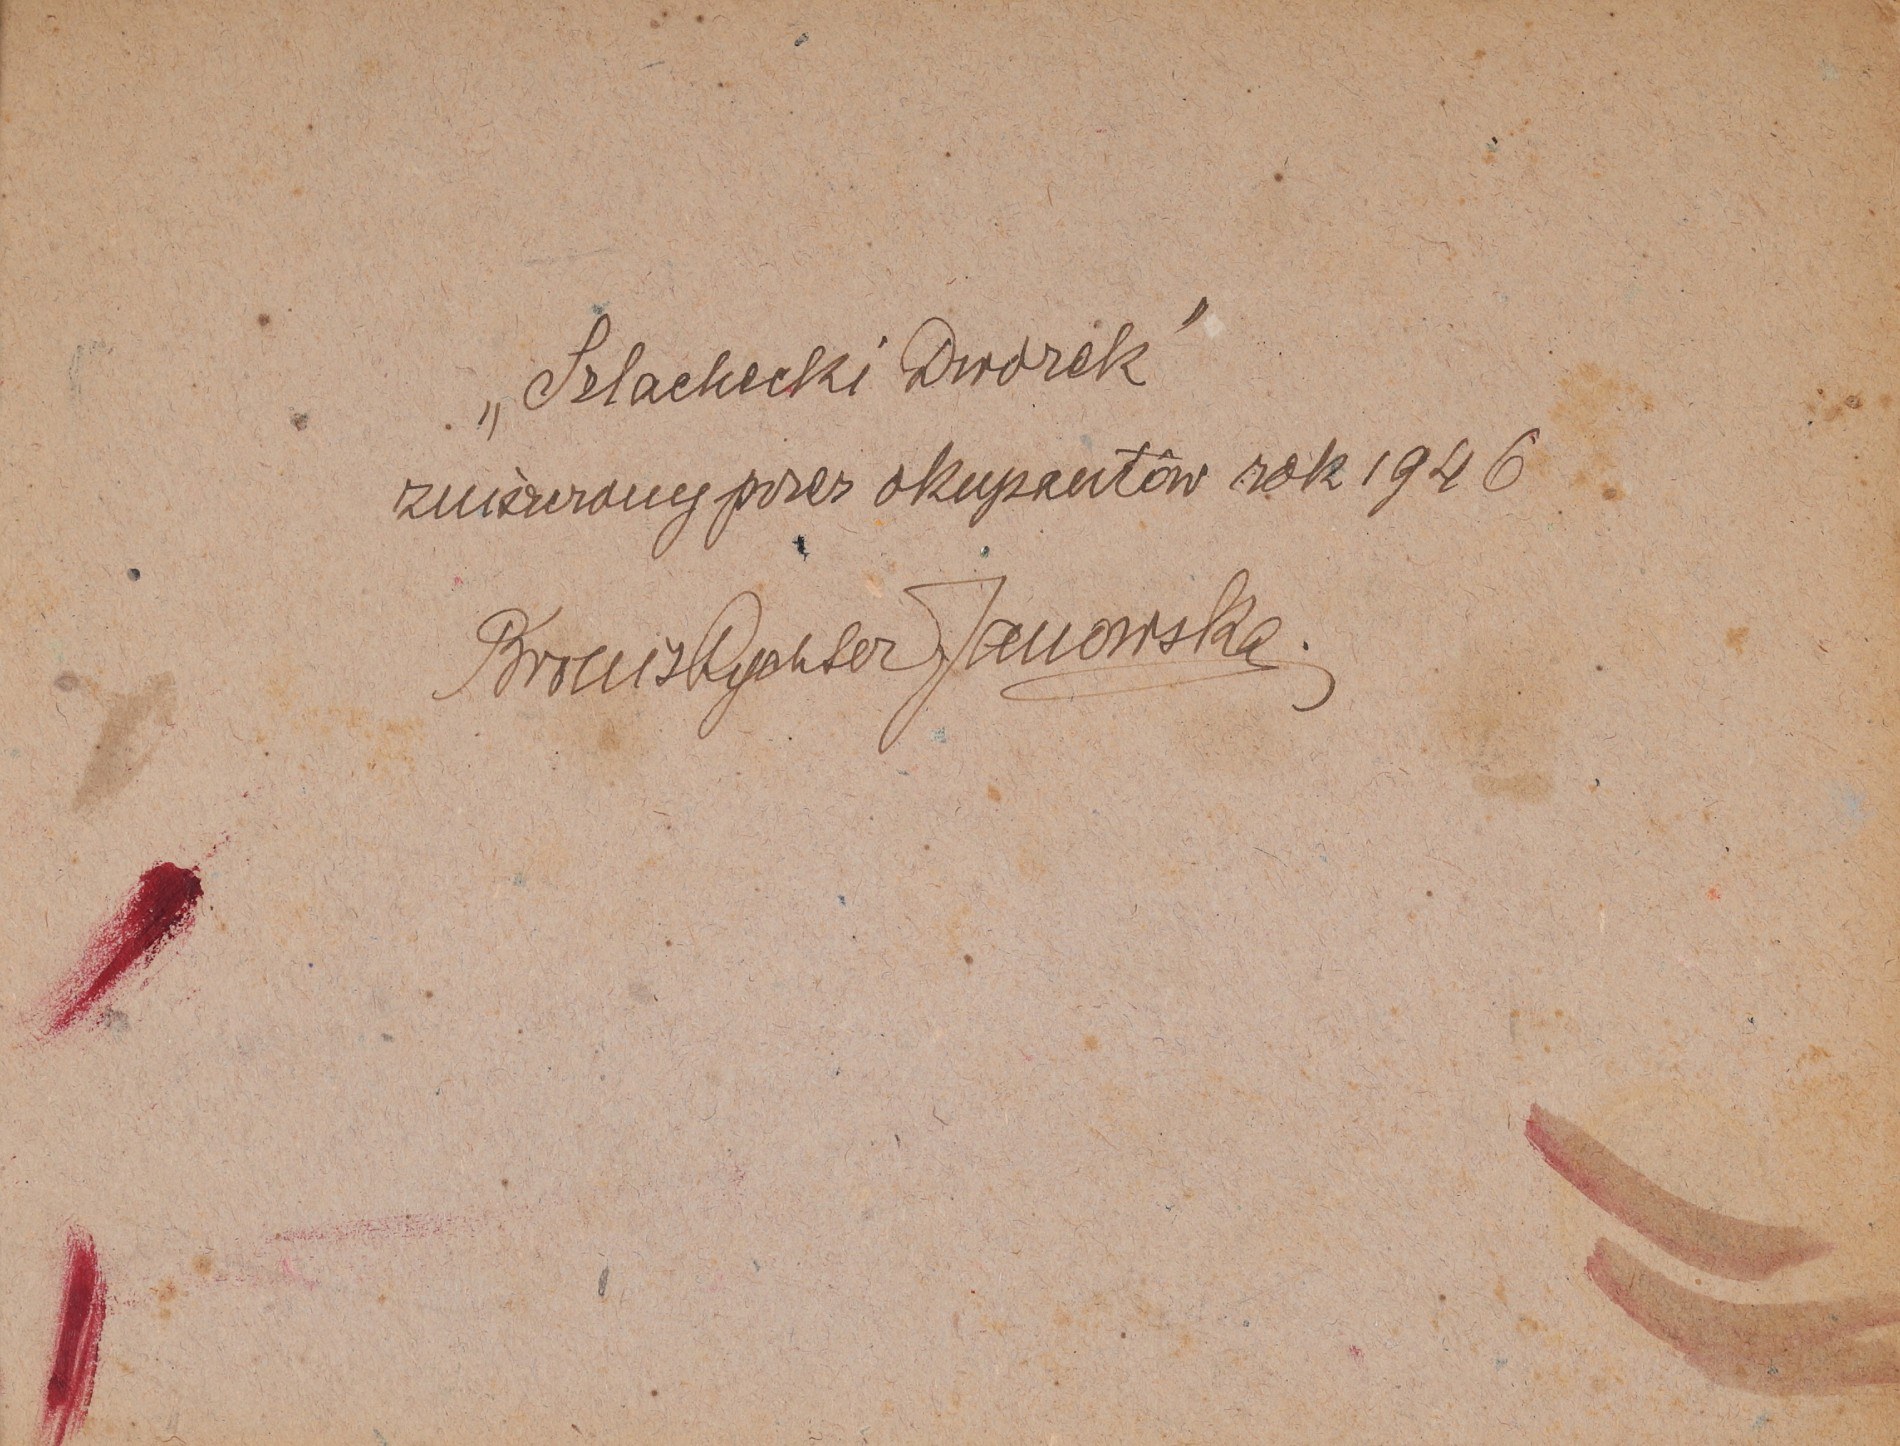 „Szlachecki Dworek”
zniszczony przez okupantów rok 1946
Bronis Rychter Janowska.